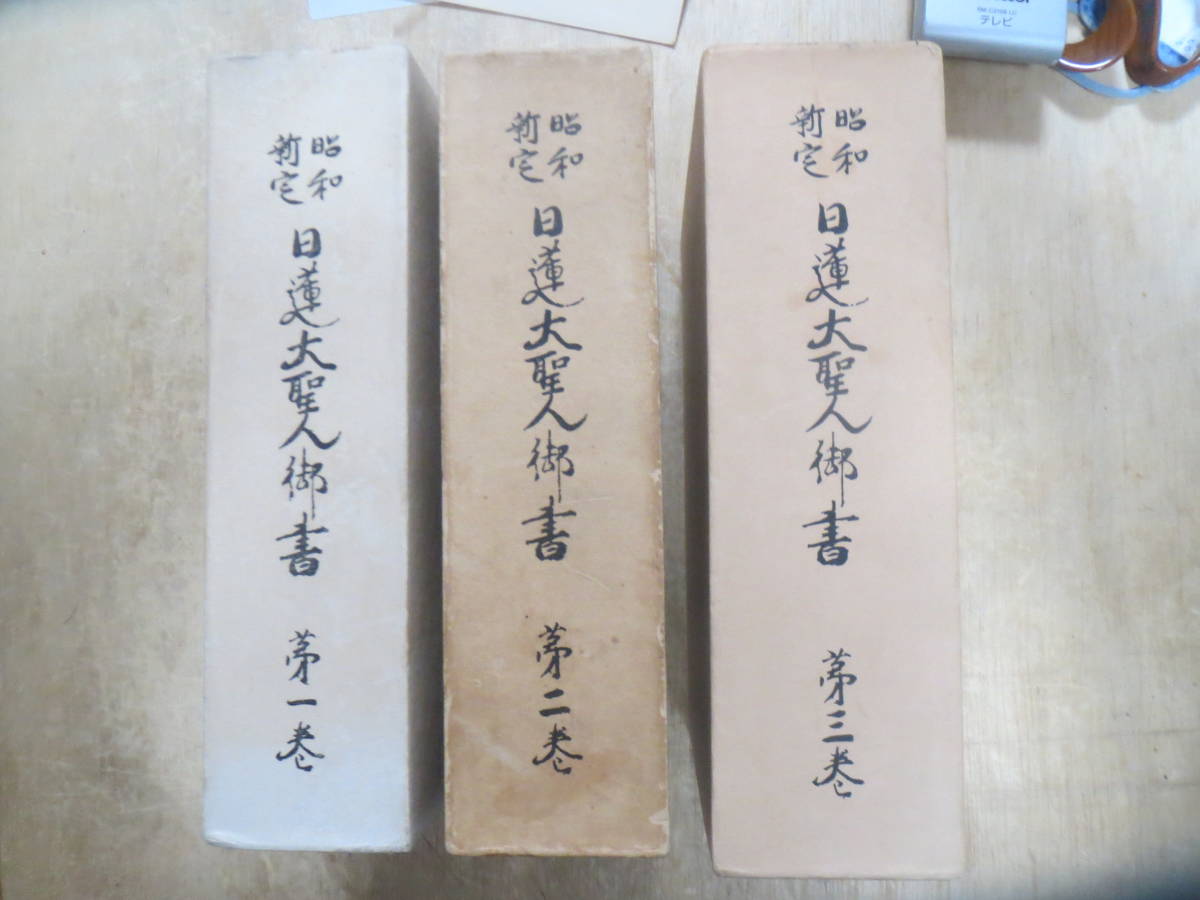 昭和
新定
日蓮大聖人御書
第一巻
昭和
新定
日蓮大聖人御書
第二巻
昭和
新定
日蓮大聖人御書
第三巻
テレビ